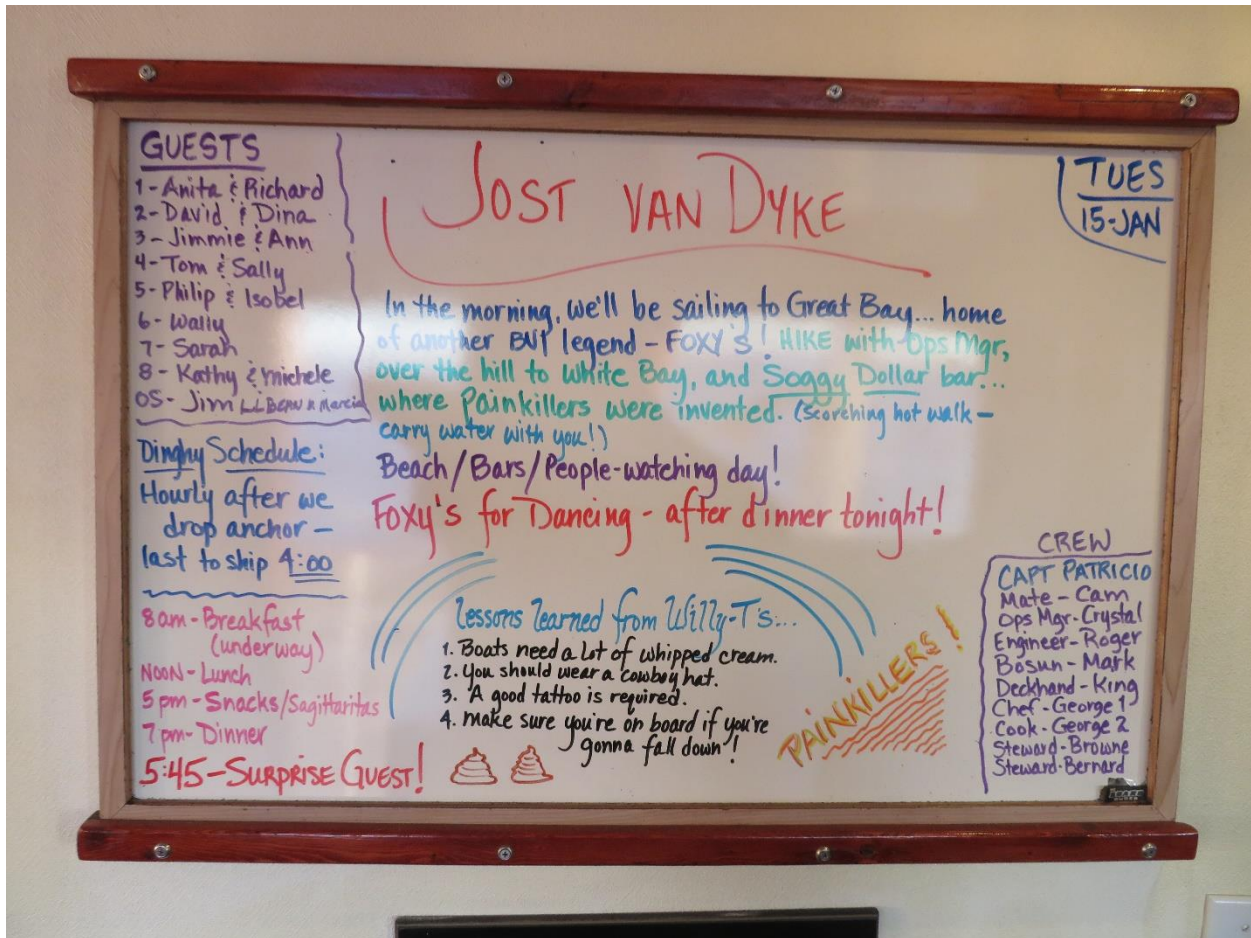 GUESTS
1 - Anita & Richard
2 - David & Dina
3 - Jimmie & Ann
4 - Tom & Sally
5 - Philip & Isobel
6 - Wally
7 - Sarah
8 - Kathy & Michele
OS - Jim
Dinghy Schedule:
Hourly after we
drop anchor -
last to ship 4:00
8am - Breakfast
(underway)
NOON - Lunch
5 pm - Snacks/Sagittaritas
7pm - Dinner
5:45 - SURPRISE GUEST!
JOST VAN DYKE
In the morning, we'll be sailing to Great Bay... home
of another BVI legend - FOXY's! HIKE with Ops Mgr,
over the hill to White Bay, and Soggy Dollar bar...
where Painkillers were invented. (scorching hot walk -
carry water with you!)
Beach/Bars/People-watching day!
Foxy's for Dancing - after dinner tonight!
Lessons Learned from Willy-T's...
1. Boats need a Lot of whipped cream.
2. You should wear a cowboy hat.
3. A good tattoo is required.
4. Make sure you're on board if you're
gonna fall down!
PAINKILLERS!
TUES
15-JAN
CREW
CAPT PATRICIO
Mate - Cam
Ops Mgr - Crystal
Engineer - Roger
Bosun - Mark
Deckhand - King
Chef - George 1
Cook - George 2
Steward - Browne
Steward - Bernard